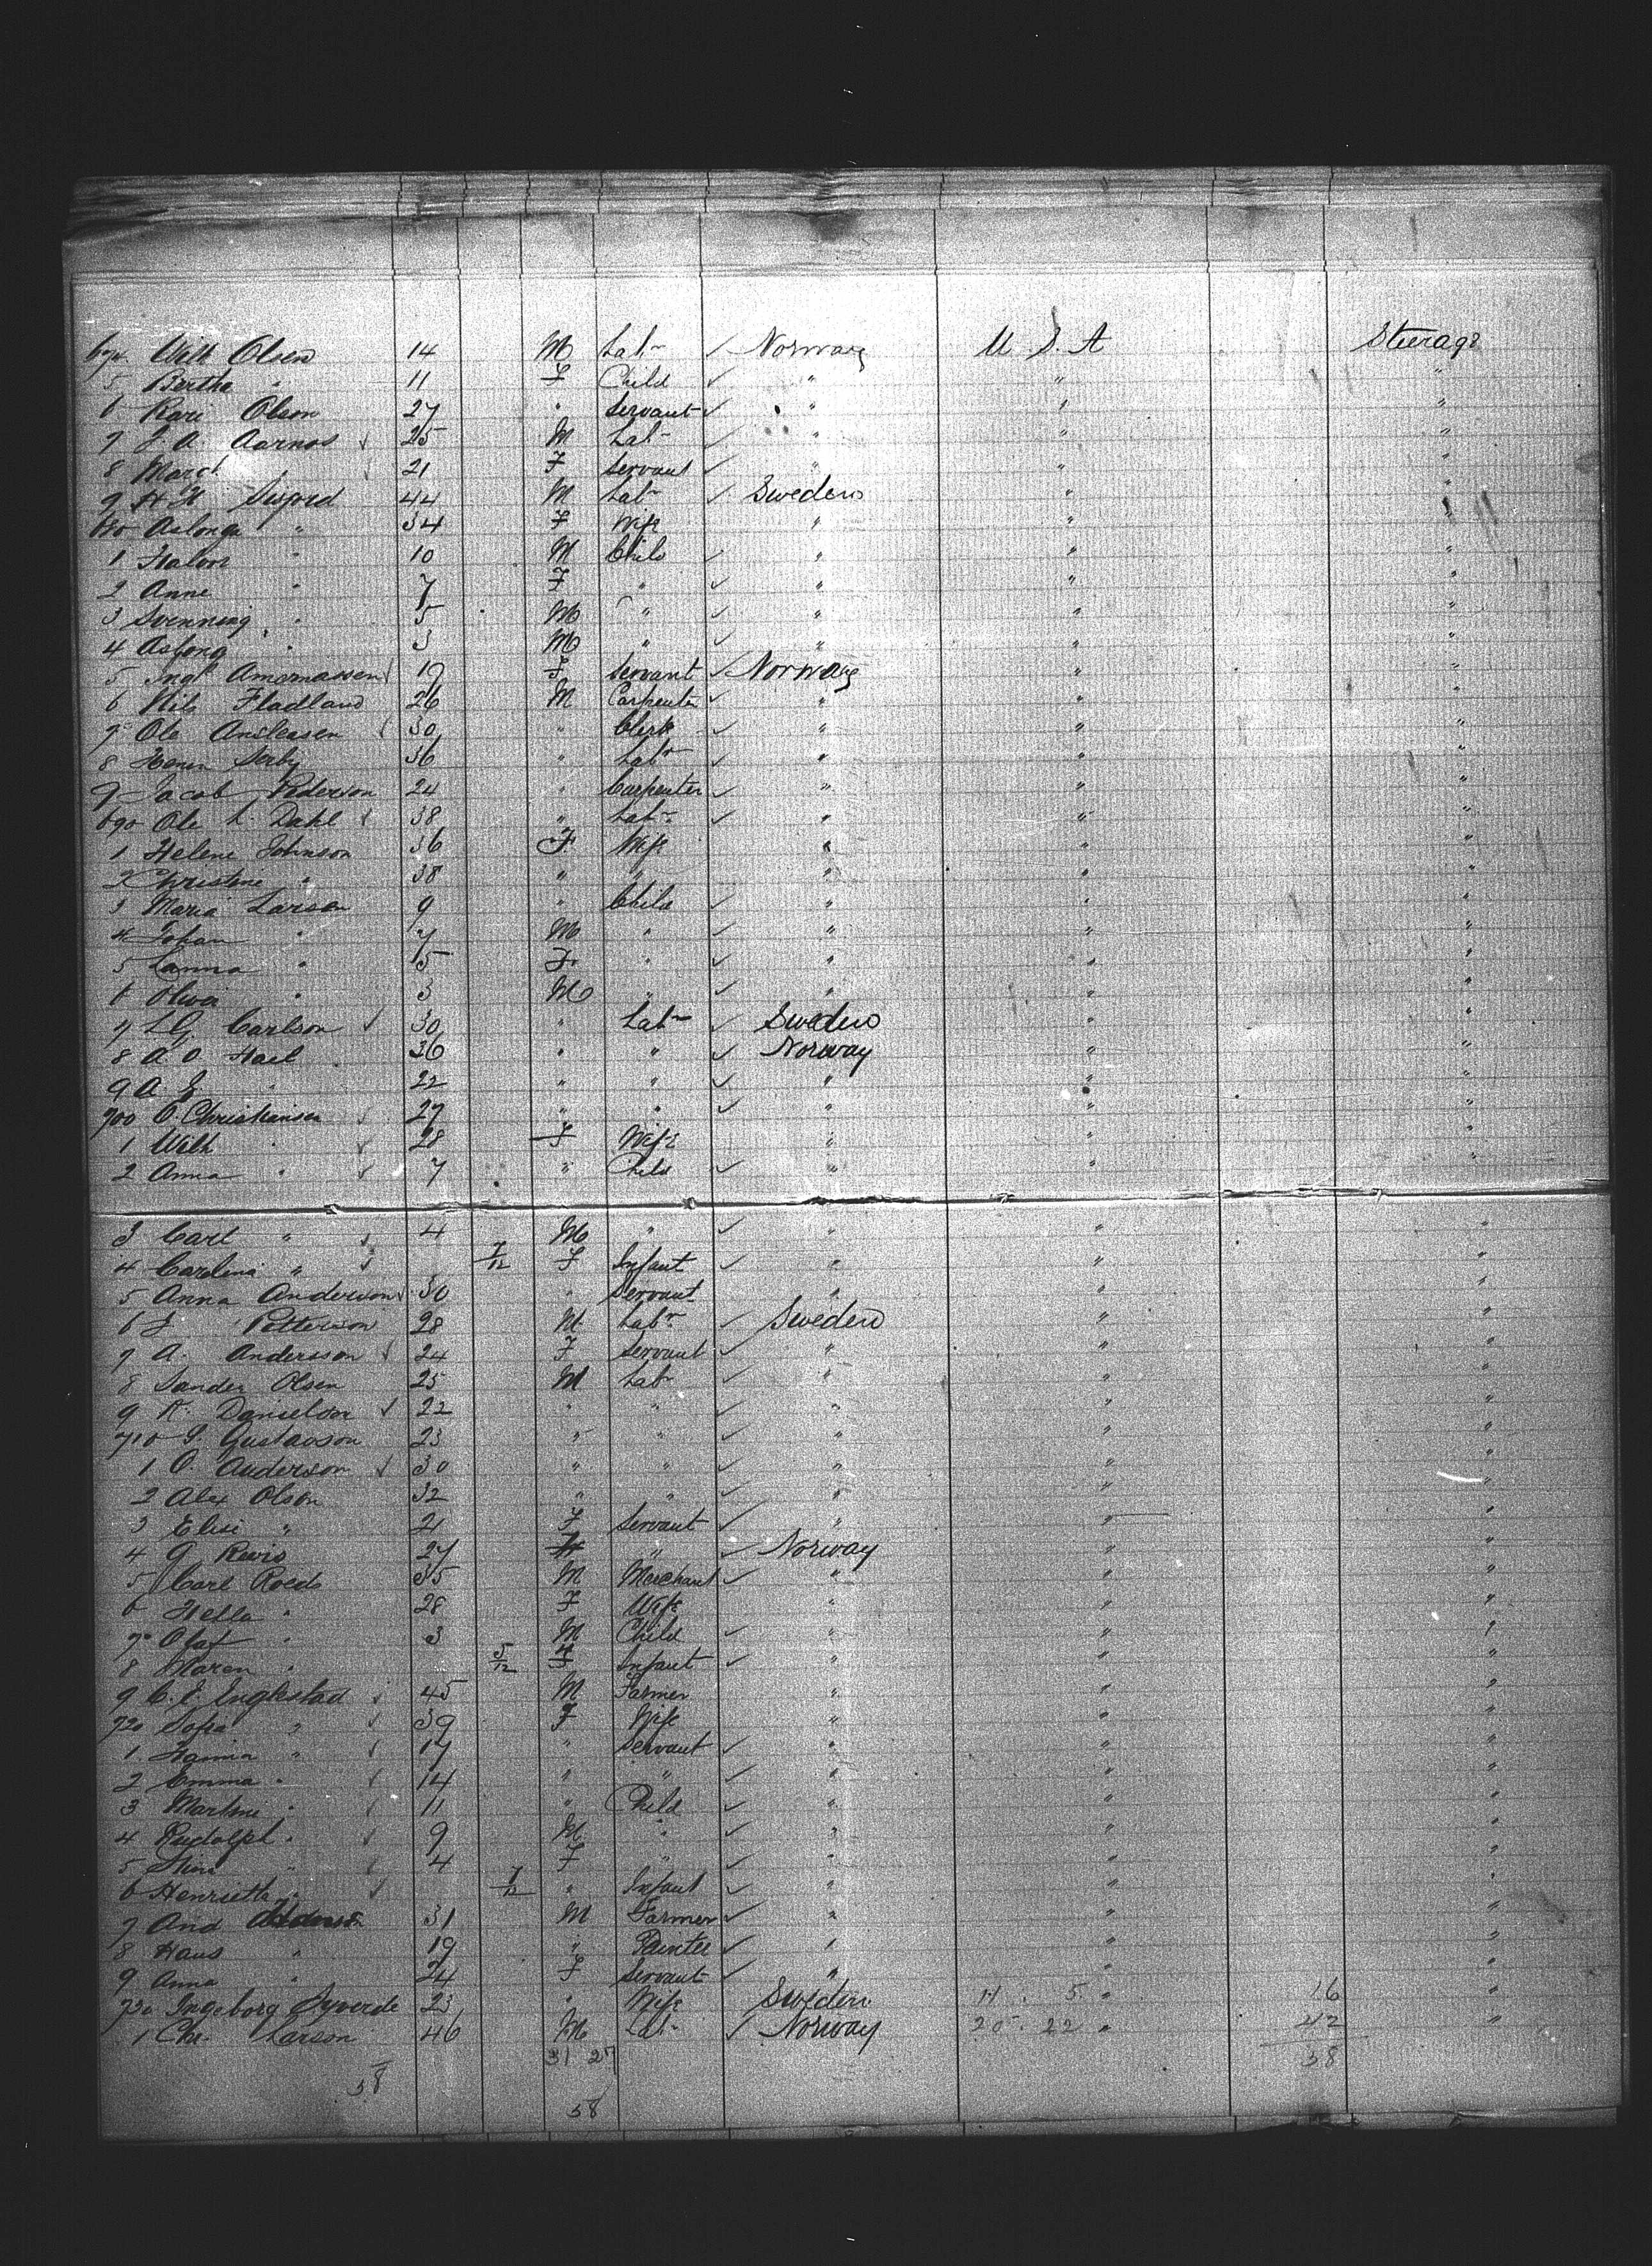 674 Wilh Olsen 14 M Labr ✓ Norway U S. A Steerage
5 Bertha " 11 F Child ✓ " " "
6 Kari Olson 27 " Servant ✓ " " "
7 J. A. Aarnos ✓ 25 M Labr ✓ " " "
8 21 F Servant ✓ " " "
9 H H 44 M Labr ✓ Sweden " "
680 " 34 F Wife " " "
1 Halvor " 10 M Child ✓ " " "
2 Anne " 7 F " ✓ " " "
3 Svenning " 5 M " ✓ " " "
4 " 3 M " ✓ " " "
5 19 F Servant ✓ Norway " "
6 Nils Fladland 26 M Carpenter ✓ " " "
7 Ole Andreasen ✓ 30 " Clerk ✓ " " "
8 36 " Labr ✓ " " "
9 Jacob Pederson 24 " Carpenter ✓ " " "
690 Ole L. Dahl ✓ 38 " Labr ✓ " " "
1 Helene Johnson 36 F Wife " " "
2 Christine " 38 " " " " "
3 Maria Larsen 9 " Child ✓ " " "
4 Johan " 7 M " ✓ " " "
5 " 5 F " ✓ " " "
6 " 3 M " ✓ " " "
7 L G. Carlson ✓ 30 " Labr ✓ Sweden " "
8 A O. 36 " " ✓ Norway " "
9 A E. " 22 " " ✓ " " "
700 O. Christiansen ✓ 27 " " ✓ " " "
1 Wilh " ✓ 28 F Wife " " "
2 Anna " ✓ 7 " Child ✓ " " "
3 Carl " ✓ 4 M " ✓ " " "
4 Carolina " ✓ 7/12 F Infant ✓ " " "
5 Anna Anderson ✓ 30 " Servant " " "
6 J Petterson 28 M Labr ✓ Sweden " "
7 A. Andersson ✓ 24 F Servant ✓ " " "
8 Sander Olsen 25 M Labr ✓ " " "
9 K. Danielson ✓ 22 " " ✓ " " "
710 Gustavson 23 " " ✓ " " "
1 O. Anderson ✓ 30 " " ✓ " " "
2 Alex Olson 32 " " ✓ " " "
3 Elise " 21 F Servant ✓ " " "
4 27 " ✓ Norway " "
5 Carl Roeds 35 M Merchant ✓ " " "
6 Hella " 28 F Wife " " "
7 Olaf " 3 M Child ✓ " " "
8 Maren " 5/12 F Infant ✓ " " "
9 C. E. Englestad ✓ 45 M Farmer " " "
720 Sofia " ✓ 39 F Wife " " "
1 " ✓ 17 " Servant ✓ " " "
2 Emma " ✓ 14 " " ✓ " " "
3 Martine " ✓ 11 " Child ✓ " " "
4 Rudolph " ✓ 9 M " ✓ " " "
5 " ✓ 4 F " ✓ " " "
6 Henrietta " ✓ 7/12 " Infant ✓ " " "
7 And 31 M Farmer ✓ " " "
8 Hans " 19 " Painter ✓ " " "
9 Anna " 24 F Servant ✓ " " "
730 Ingeborg Syverde 23 " Wife Sweden 11 . 5 " 16 "
1 Chr. Larson 46 M Labr ✓ Norway 20 . 22 " 42 "
31 27 58
58
58